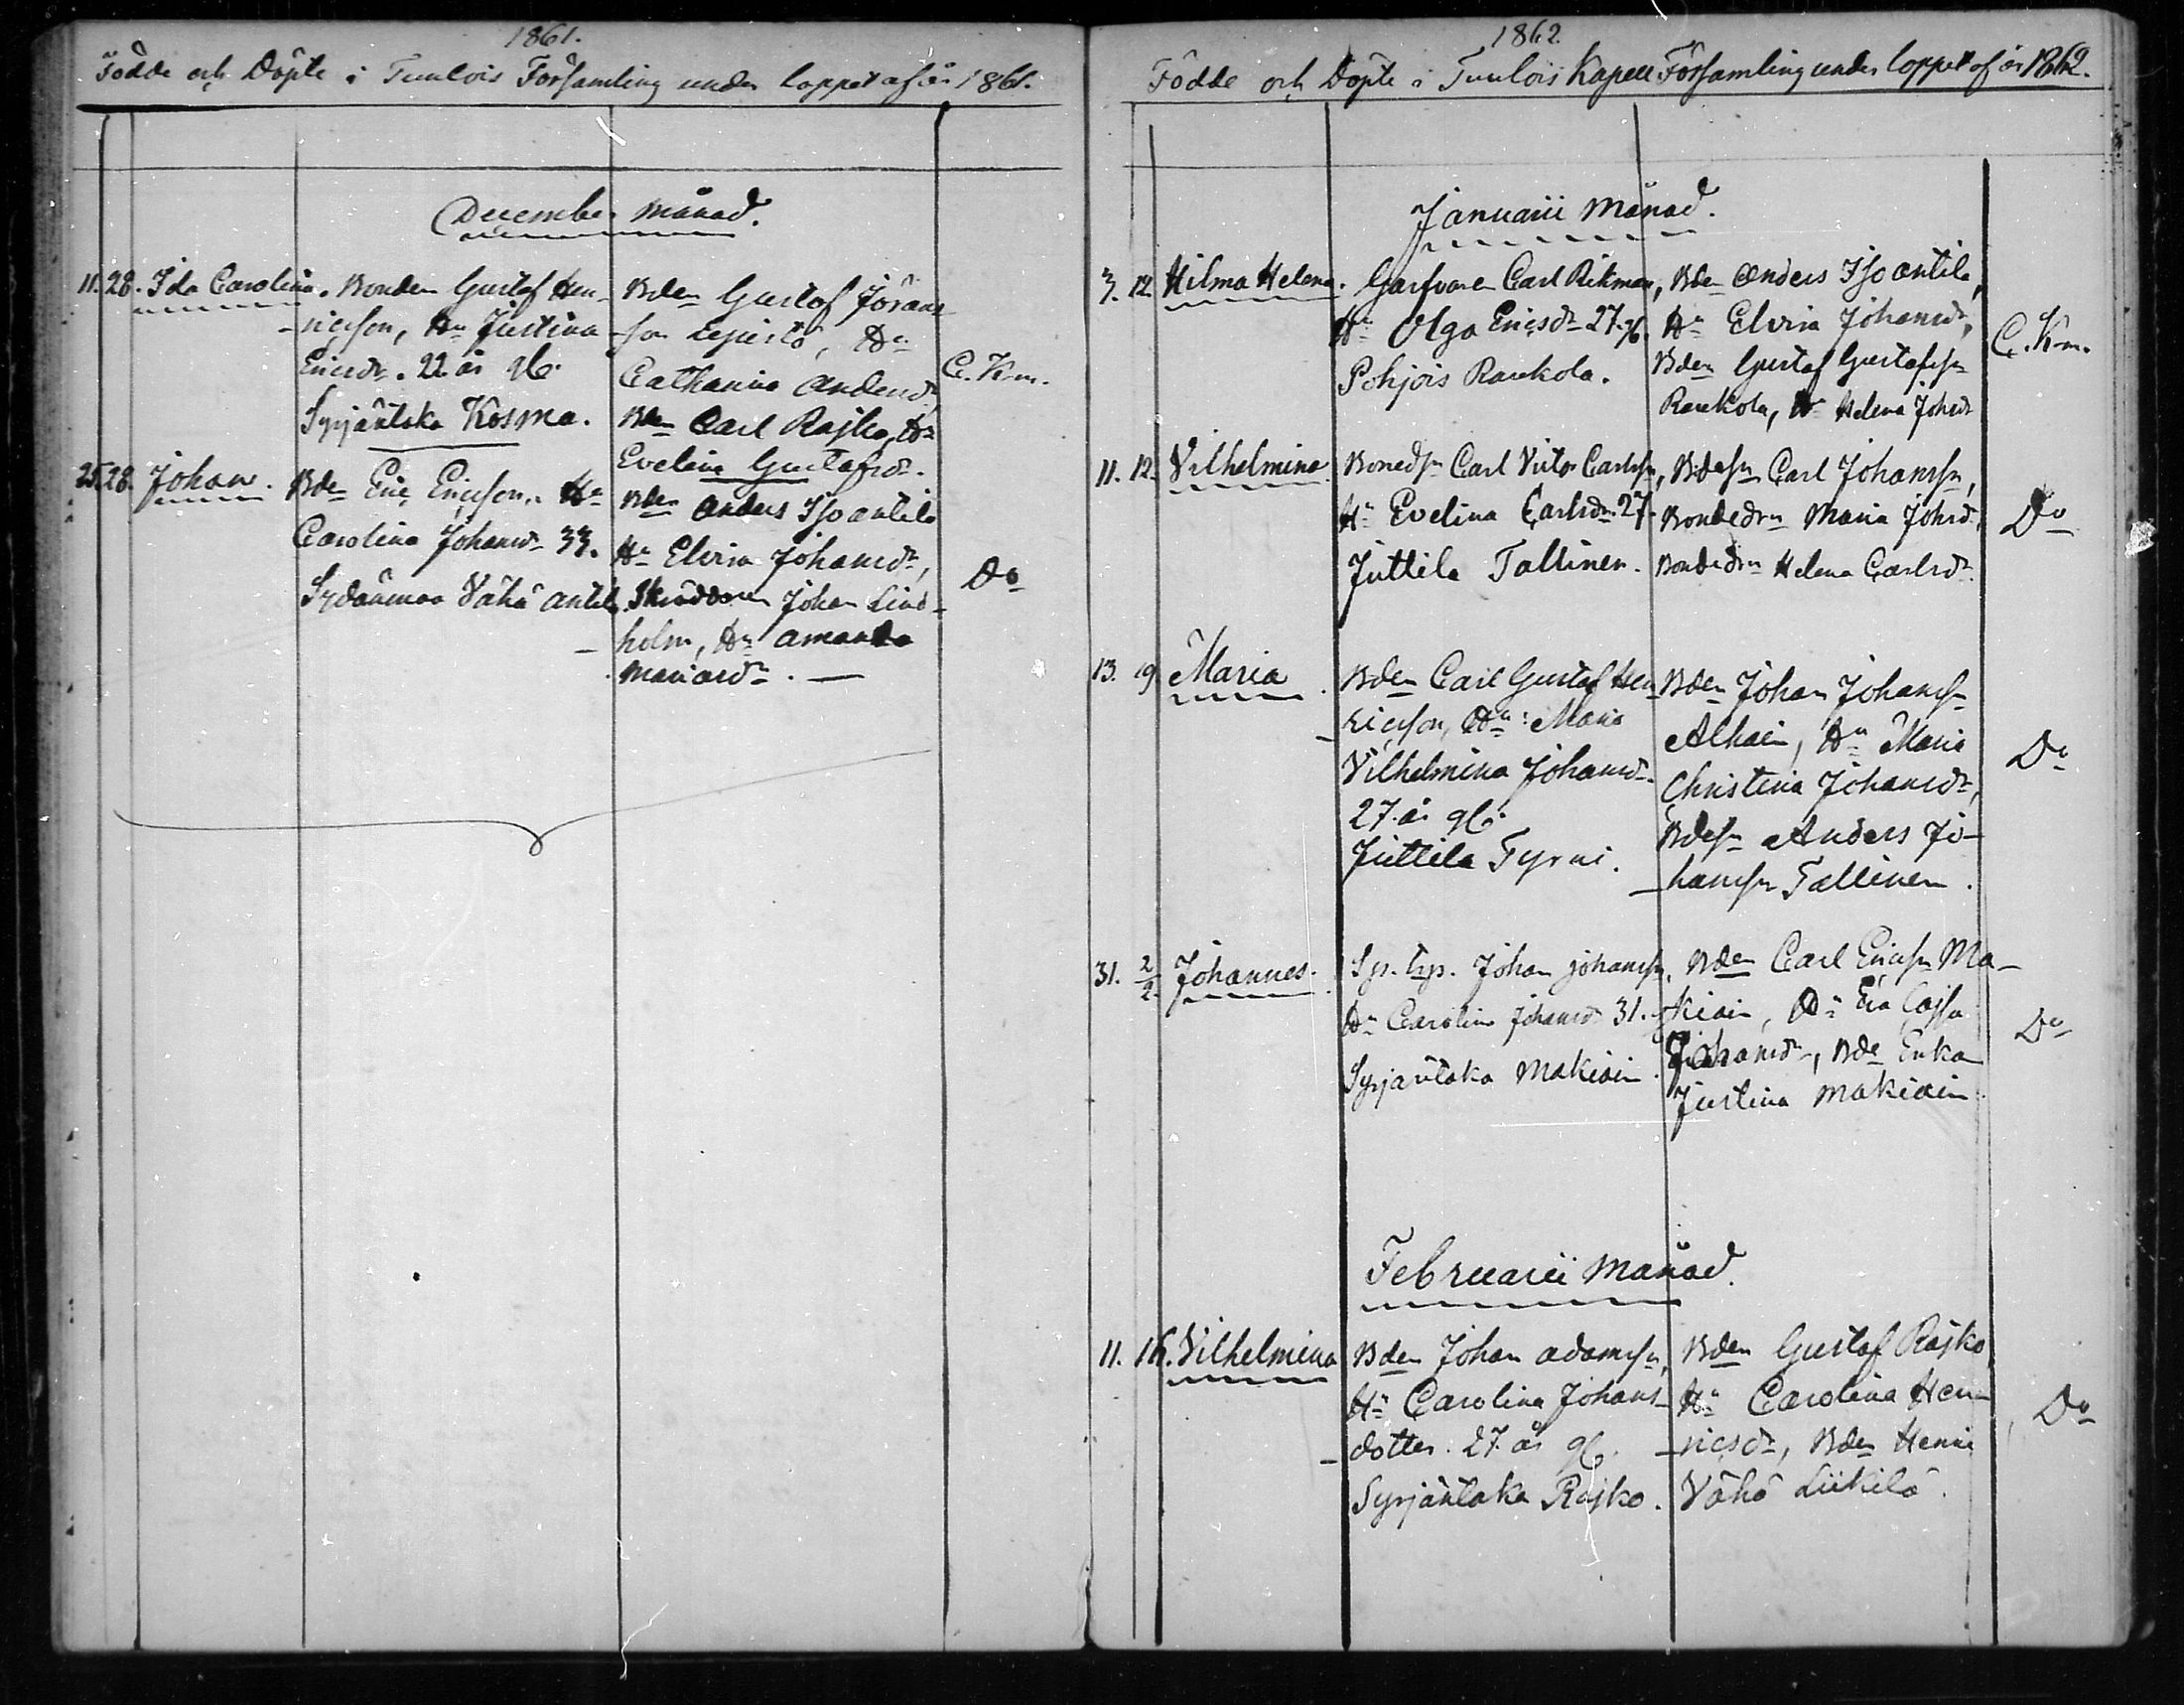 1861.
Födde och Döpte i Tuulois Församling under loppet af år 1861.
December månad.
11. 28. Ida Carolina. Bonden Gustaf Hen-
ricsson, Hu Justina
Ericsdr. 22 år gl.
Syrjäntaka Kosma.
Bden Gustaf Jörans-
son Lepistö, Hu
Catharina Andersdr
Bden Carl Rajko, Hu
Evelina Gustafsdr.
C. K-m.
25. 28. Johan.
Bden Eric Ericsson, Hu
Carolina Johansdr 33.
Sydänmaa Vähä antila
Bden Anders Iso antila
Hu Elvira Johansdr,
Skräddaren Johan Lind-
holm, Hu Amanda
Mariasdr. —
Do
1862.
Födde och Döpte i Tuulois Kapell Församling under loppet af år 1862.
Januarii månad.
3. 12. Hilma Helena. Garfvaren Carl Rikman,
Hu Olga Ericsdr 27. gl.
Pohjois Raukola.
Bden Anders Iso antila,
Hu Elvira Johansdr,
Bden Gustaf Gustafssn
Raukola, Hu Helena Johsdr
C. K-m.
11. 12. Vilhelmina Bondesn Carl Victor Carlssn,
Hu Evelina Carlsdr. 27.
Juttila Tallinen.
Bdesn Carl Johanssn,
Bondedrn Maria Johsdr,
Bondedrn Helena Carlsdr.
Do
13. 19 Maria.
Bden Carl Gustaf Hen-
ricsson, Hu: Maria
Vilhelmina Johansdr.
27. år gl.
Juttila Tyrni.
Bden Johan Johanssn
Alhain, Hu Maria
Christina Johansdr,
Bdesn Anders Jo-
hanssn Tallinen.
Do
31. 2/2. Johannes. Johan Johanssn,
Hu Carolina Johansdr 31.
Syrjäntaka Makiain.
Bden Carl Ericssn Ma-
kiain, Hu Eva Cajsa
Johansdr, Bde Enka
Justina Makiain.
Do
Februarii månad.
11. 16. Vilhelmina Bden Johan Adamssn,
Hu Carolina Johans-
dotter. 27. år gl.
Syrjäntaka Rajko.
Bden Gustaf Rajko
Hu Carolina Hen-
ricsdr, Bden Henric
Vähä Liikilä.
Do